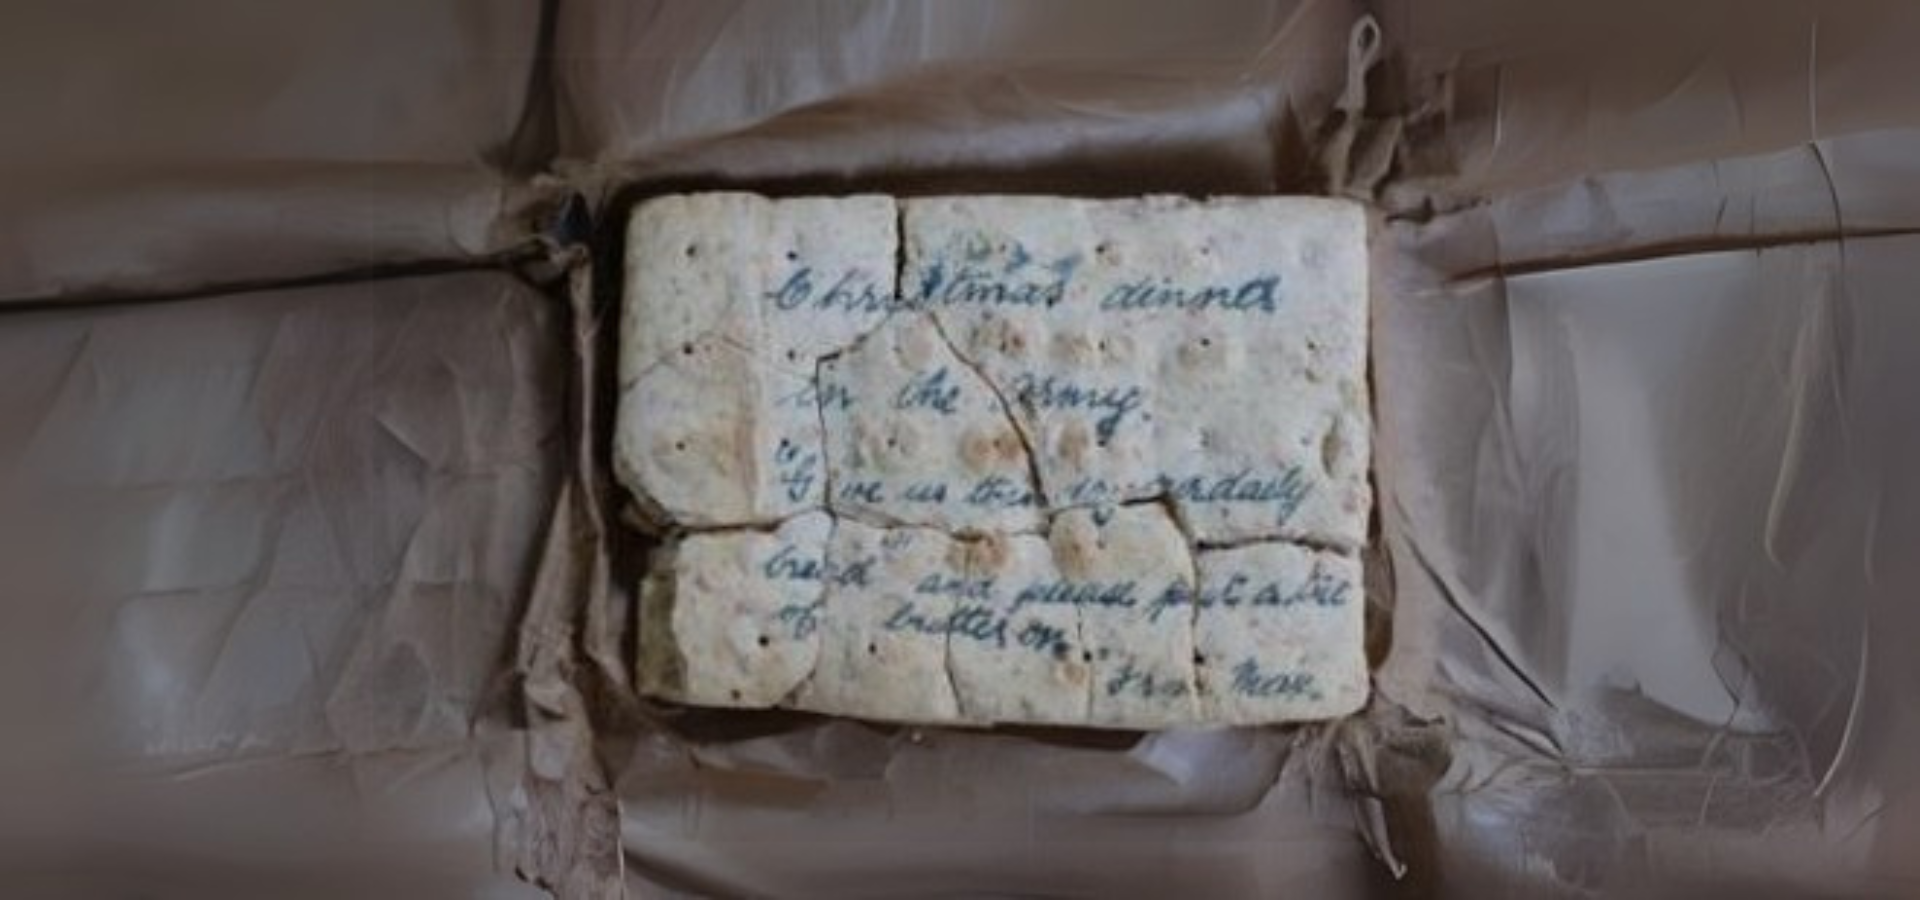 Christmas dinner
in the Army.
Give us this day our daily
bread and please put a bit
of butter on
From Max.